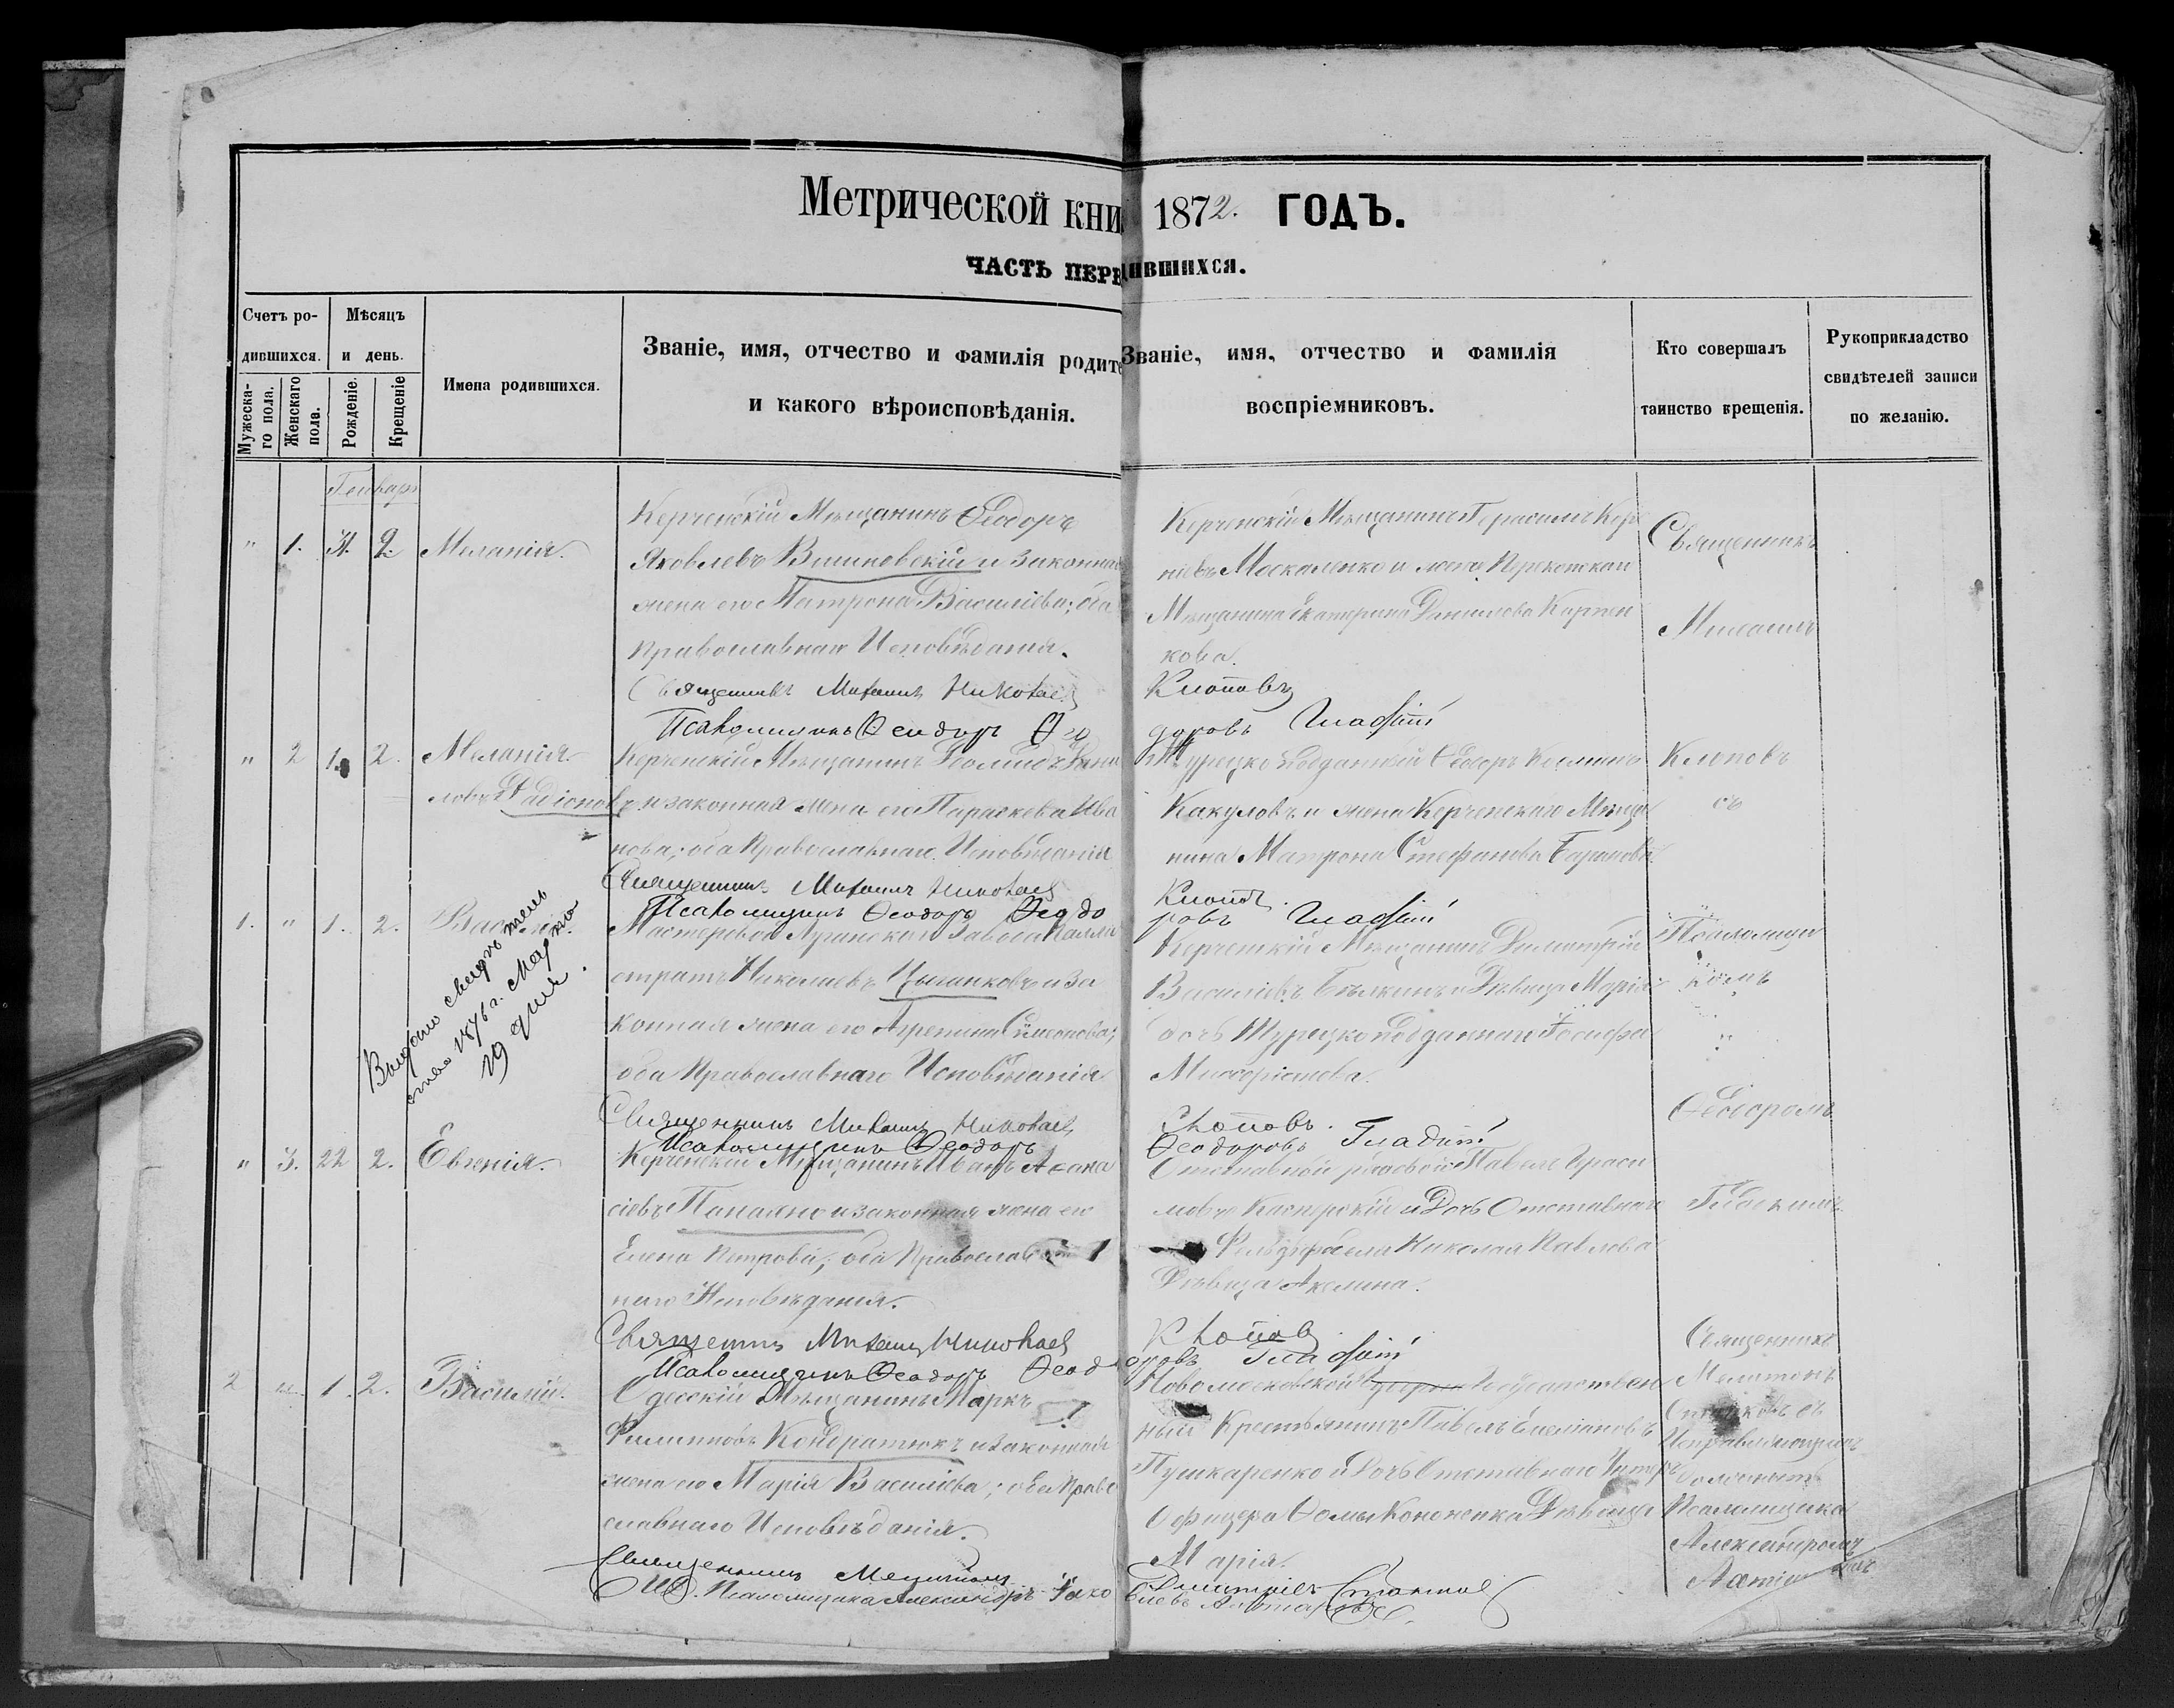 Метрической кни 1872. ГОДЪ.
ЧАСТЬ ПЕРВ ДИВШИХСЯ.
Счетъ ро-
дившихся.
Мужеска-
го пола.
Женскаго
пола.
Мѣсяцъ
и день.
Рожденіе.
Крещеніе
Имена родившихся.
Званіе, имя, отчество и фамилія родите
и какого вѣроисповѣданія.
Званіе, имя, отчество и фамилія
воспріемниковъ.
Кто совершалъ
таинство крещенія.
Рукоприкладство
свидѣтелей записи
по желанію.
Генварь
" 1. 31. 2. Меланія.
Керченскій Мѣщанинъ Ѳеодоръ
Яковлевъ Вишновскій и законная
жена его Матрона Василіева; оба
Православнаго Исповѣданія.
Священникъ Михаилъ Николаев
Псаломщикъ Ѳеодоръ Ѳео
Керченскій Мѣщанинъ Герасимъ Кор
ніевъ Москаленко и жена Перекопскаго
Мѣщанина Екатерина Данилова Карпен
кова.
Клоповъ
доровъ Гладкій
Священникъ
Михаилъ
" 2 1. 2. Меланія
Керченскій Мѣщанинъ Дани
ловъ Радіоновъ и законная жена его Параскева Ива
нова; оба Православнаго Исповѣданія
Священникъ Михаилъ Николаев
Псаломщикъ Ѳеодоръ Ѳеодо
Турецко Подданный Ѳеодоръ Косминъ
Какуловъ и жена Керченскаго Мѣща
нина Матрона Стефанова Баранова
Клоповъ.
ровъ Гладкій
Клоповъ
съ
1. " 1. 2. Василій.
Выдано свидѣтель
ство 1876 г. Марта
29 дня.
Мастеровой Луганскаго Завода Калли
стратъ Николаевъ Цыганковъ и за
конная жена его Агрепина Симеонова;
оба Православнаго Исповѣданія
Священникъ Михаилъ Николаев
Псаломщикъ Ѳеодоръ
Керченскій Мѣщанинъ Димитрій
Василіевъ Бѣлкинъ и Дѣвица Марія
дочь Турецко подданнаго Іосифа
Клоповъ.
Ѳеодоровъ Гладкій
Псаломщи
комъ
Ѳеодоромъ
" 3. 22 2. Евгенія.
Керченскій Мѣщанинъ Иванъ Аѳана
сіевъ Панаяно и законная жена его
Елена Петрова; оба Православ
наго Исповѣданія.
Священникъ Михаилъ Николаев
Псаломщикъ Ѳеодоръ Ѳеод
Отставной рядовой Павелъ Гераси
мовъ Касперскій и Дочь Отставнаго
Фельдфебеля Николая Павлова
Дѣвица Акелина.
Клоповъ
оровъ Гладкій
Гладкимъ
2 " 1. 2. Василій.
Одесскій Мѣщанинъ Маркъ
Филипповъ Кондратюкъ и законная
жена его Марія Василіева; оба Право
славнаго Исповѣданія.
Священникъ Мелитонъ
И.д. Псаломщика Александръ Яко
Новомосковской Государствен
ный Крестьянинъ Павелъ Емеліановъ
Пушкаренко и Дочь Отставнаго Унтеръ
Офицера Ѳомы Кононенка Дѣвица
Марія.
Димитріевъ
влевъ
Священникъ
Мелитонъ
съ
Исправляющимъ
должность
Псаломщика
Александромъ